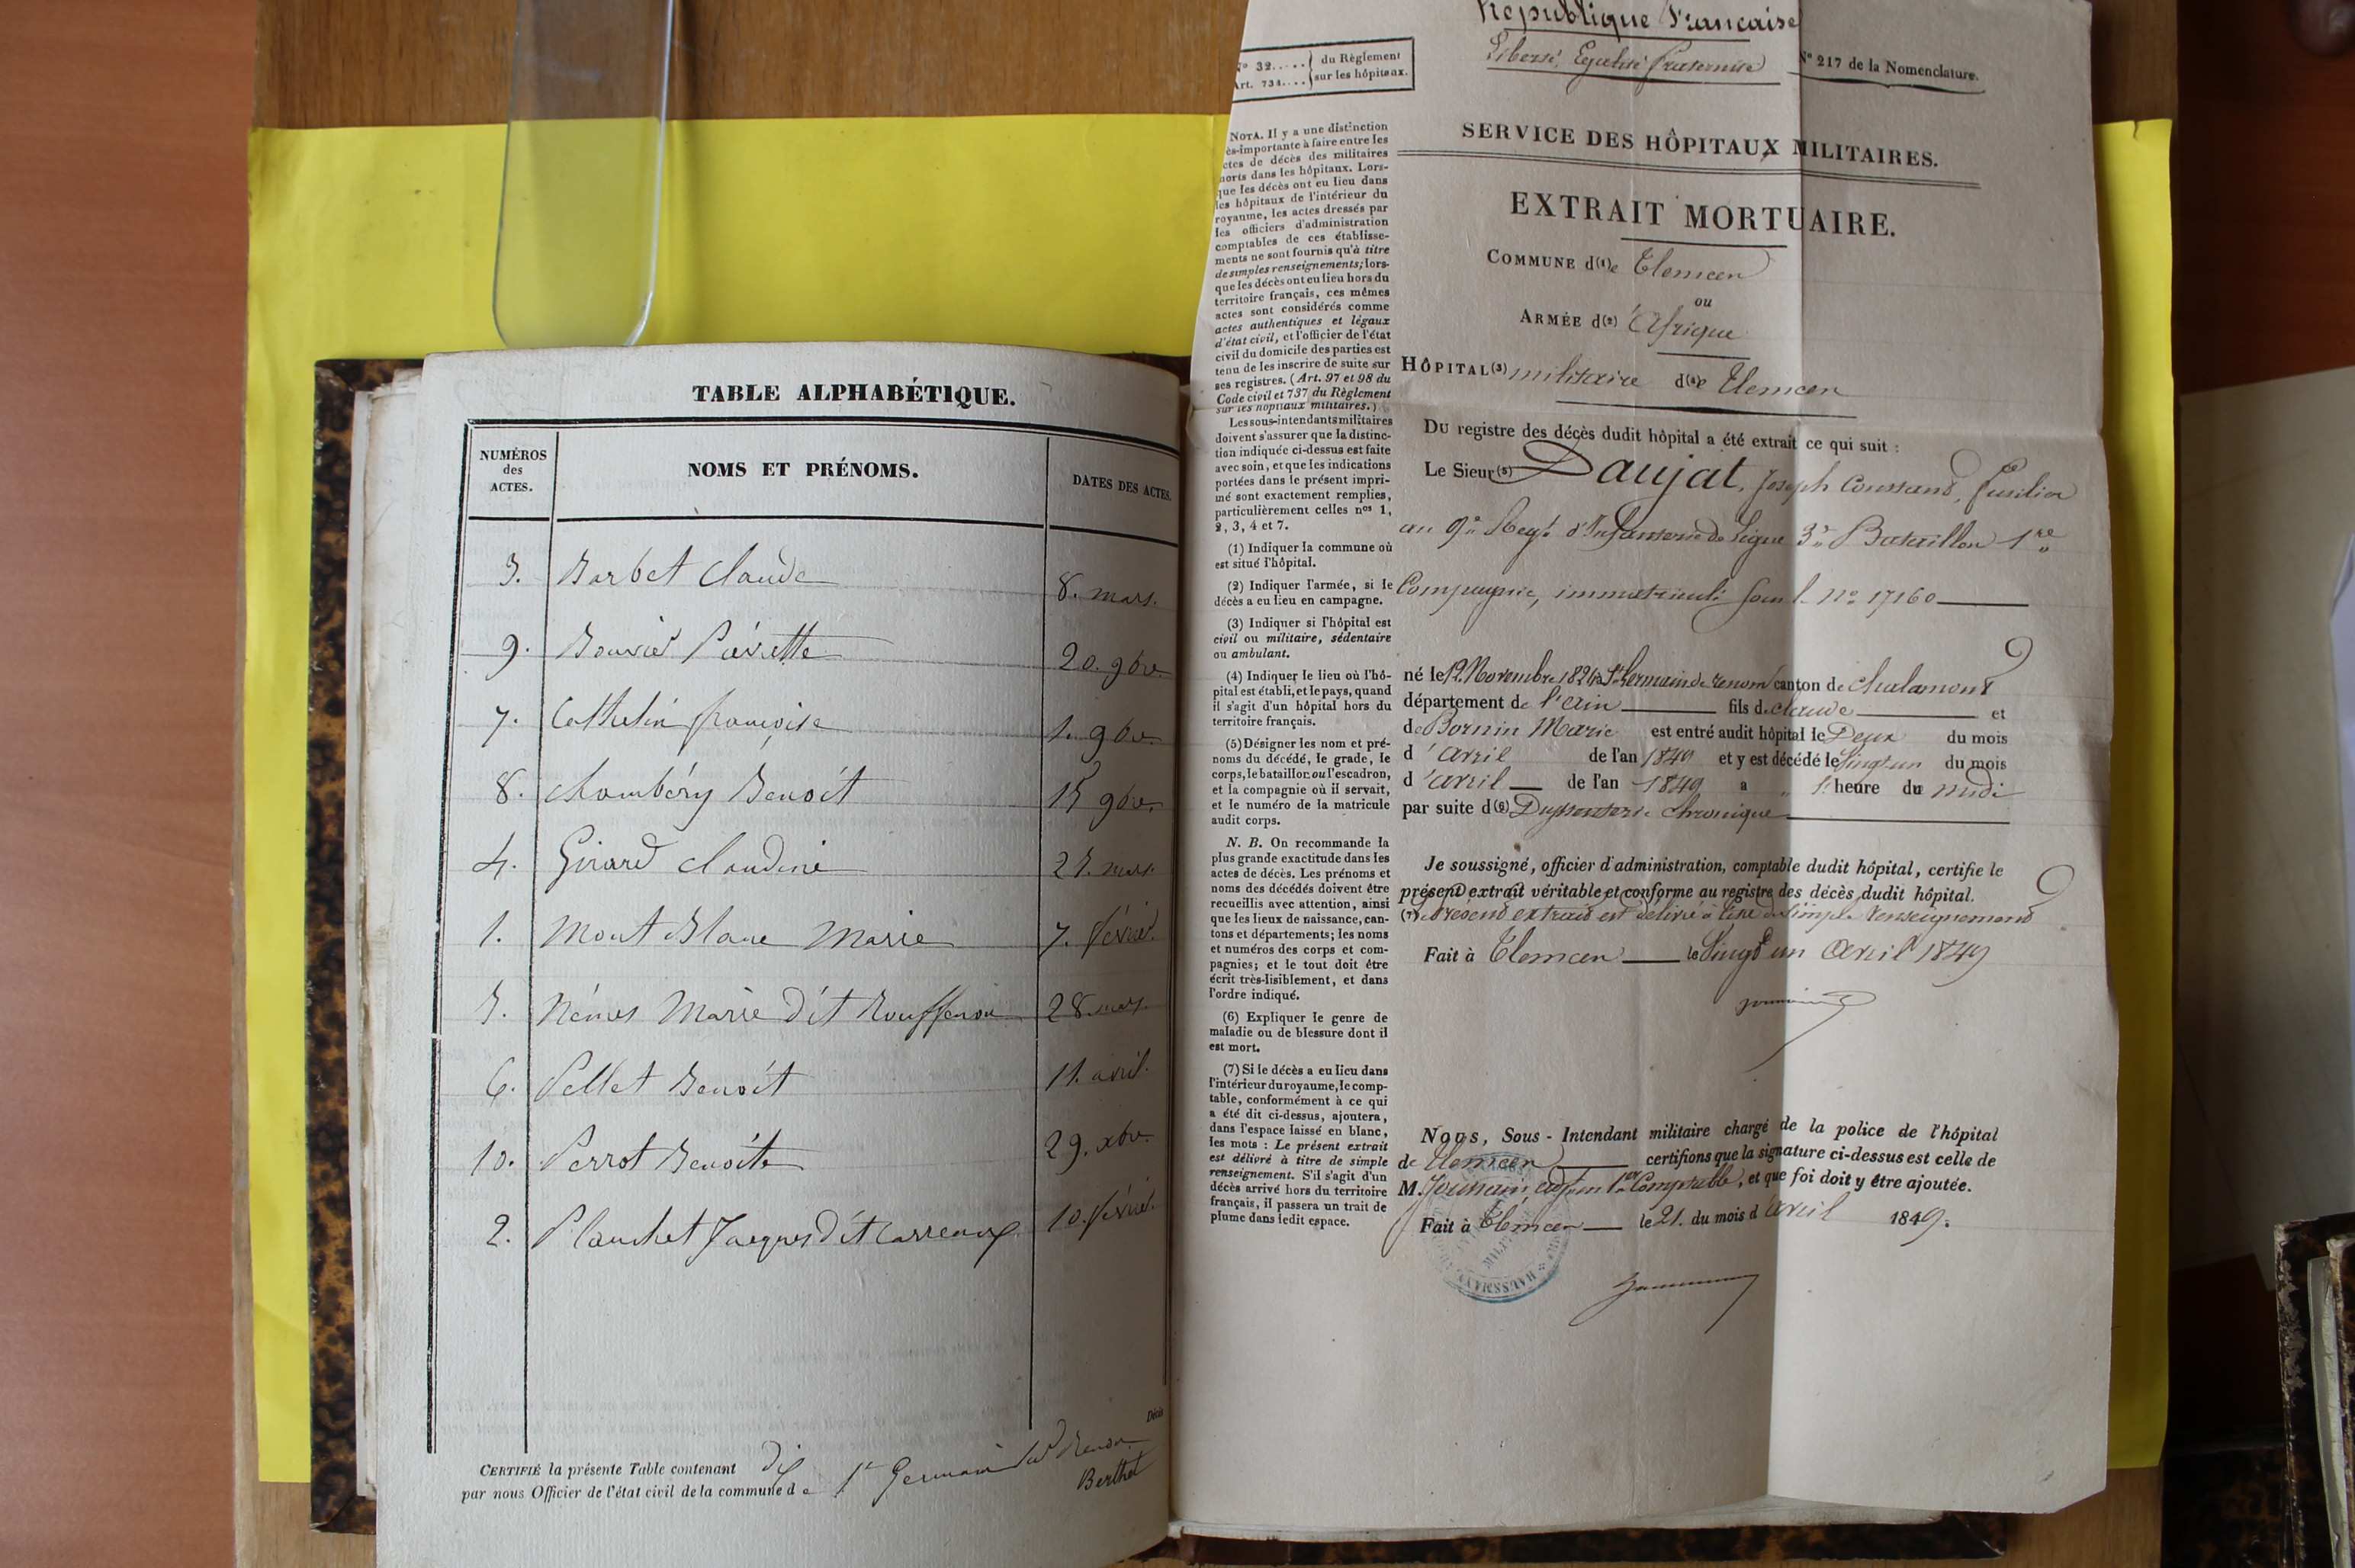 TABLE ALPHABÉTIQUE.
NUMÉROS
des
ACTES.
NOMS ET PRÉNOMS.
DATES DES ACTES.
3. Barbet Claude 8. mars.
9. Bouvier Pierrette 20. 9bre.
7. Cathelin françoise 1. 9bre.
8. Chambéry Benoît 15 9bre.
4. Girard Claudine 25. mars.
1. Mont Blanc Marie 7. février.
5. Némes Marie dit 28 mars.
6. Pellet Benoît 11. avril.
10. Perrot Benoîte 29. xbre.
2. Planchet Jacques dit 10. février.
Décès
CERTIFIÉ la présente Table contenant dix
par nous Officier de l'état civil de la commune de St Germain sur Renon
Berthet
République Francaise
Liberté, Egalité fraternité
N° 32..... du Règlement
Art. 734.... sur les hôpitaux.
N° 217 de la Nomenclature.
SERVICE DES HÔPITAUX MILITAIRES.
EXTRAIT MORTUAIRE.
COMMUNE d(1)e Tlemcen
ou
ARMÉE d(2) 'Afrique
HÔPITAL(3) militaire d(4)e Tlemcen
NOTA. Il y a une distinction
ès-importante à faire entre les
ctes de décès des militaires
morts dans les hôpitaux. Lors-
que les décès ont eu lieu dans
les hôpitaux de l'intérieur du
royaume, les actes dressés par
les officiers d'administration
comptables de ces établisse-
ments ne sont fournis qu'à titre
de simples renseignements; lors-
que les décès ont eu lieu hors du
territoire français, ces mêmes
actes sont considérés comme
actes authentiques et légaux
d'état civil, et l'officier de l'état
civil du domicile des parties est
tenu de les inscrire de suite sur
ses registres. (Art. 97 et 98 du
Code civil et 737 du Règlement
sur les hôpitaux militaires.)
Les sous-intendants militaires
doivent s'assurer que la distinc-
tion indiquée ci-dessus est faite
avec soin, et que les indications
portées dans le présent impri-
mé sont exactement remplies,
particulièrement celles nos 1,
2, 3, 4 et 7.
(1) Indiquer la commune où
est situé l'hôpital.
(2) Indiquer l'armée, si le
décès a eu lieu en campagne.
(3) Indiquer si l'hôpital est
civil ou militaire, sédentaire
ou ambulant.
(4) Indiquer le lieu où l'hô-
pital est établi, et le pays, quand
il s'agit d'un hôpital hors du
territoire français.
(5) Désigner les nom et pré-
noms du décédé, le grade, le
corps, le bataillon ou l'escadron,
et la compagnie où il servait,
et le numéro de la matricule
audit corps.
N. B. On recommande la
plus grande exactitude dans les
actes de décès. Les prénoms et
noms des décédés doivent être
recueillis avec attention, ainsi
que les lieux de naissance, can-
tons et départements; les noms
et numéros des corps et com-
pagnies; et le tout doit être
écrit très-lisiblement, et dans
l'ordre indiqué.
(6) Expliquer le genre de
maladie ou de blessure dont il
est mort.
(7) Si le décès a eu lieu dans
l'intérieur du royaume, le comp-
table, conformément à ce qui
a été dit ci-dessus, ajoutera,
dans l'espace laissé en blanc,
les mots : Le présent extrait
est délivré à titre de simple
renseignement. S'il s'agit d'un
décès arrivé hors du territoire
français, il passera un trait de
plume dans ledit espace.
DU registre des décès dudit hôpital a été extrait ce qui suit :
Le Sieur(5) Daujat, Joseph Constant, fusilier
au 9e Regt. d'Infanterie de Ligne 3e Bataillon 1re
Compagnie, immatriculé sous le no 17160
né le 12 Novembre 1826 à St Germain de renom canton de Chalamont
département de l'ain fils de claude et
de Bornin Marie est entré audit hôpital le Deux du mois
d'avril de l'an 1849 et y est décédé le Vingt un du mois
d'avril de l'an 1849 a 1e heure du midi
par suite d(6) Dyssenterie Chronique
Je soussigné, officier d'administration, comptable dudit hôpital, certifie le
présent extrait véritable et conforme au registre des décès dudit hôpital.
(7) Le présent extrait est délivré à titre de simple renseignement
Fait à Tlemcen le Vingt un Avril 1849
Nous, Sous-Intendant militaire chargé de la police de l'hôpital
de Tlemcen certifions que la signature ci-dessus est celle de
M. Comptable, et que foi doit y être ajoutée.
Fait à Tlemcen le 21. du mois d'avril 1849.
HAUSSMANN